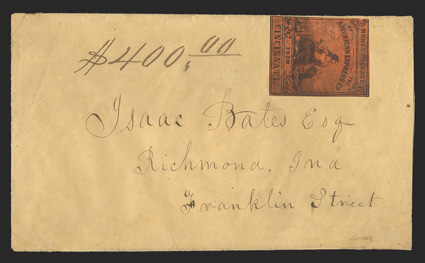 $400.00
AMERICAN EXPRESS CO.
CINCINNATI
Isaac Bates Esq
Richmond, Ind
Franklin Street